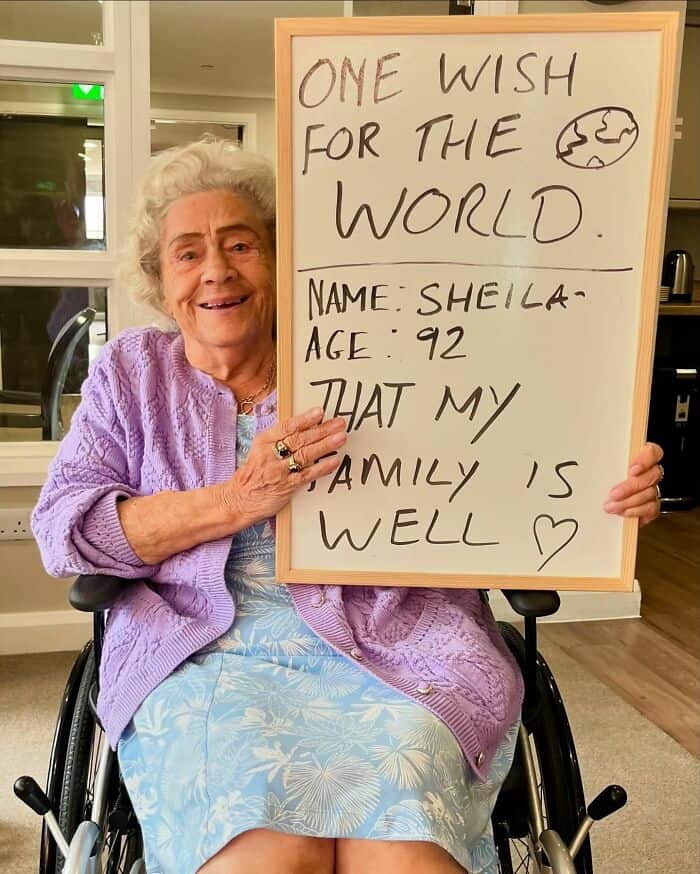 ONE WISH
FOR THE
WORLD.
NAME: SHEILA-
AGE: 92
THAT MY
FAMILY IS
WELL